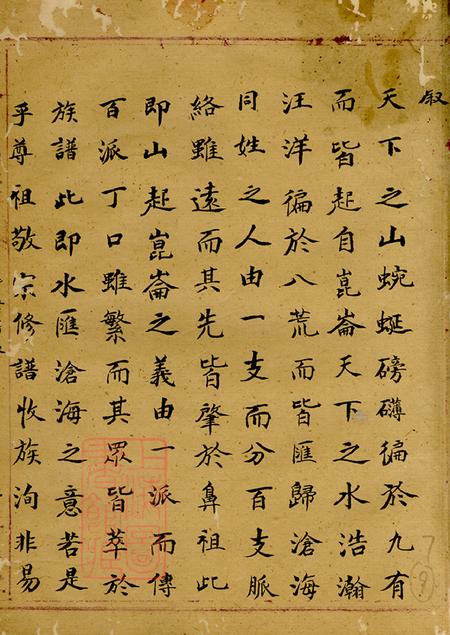 叙
天下之山蜿蜒磅礴徧於九有
而皆起自崑崙天下之水浩瀚
汪洋徧於八荒而皆匯歸滄海
同姓之人由一支而分百支脈
絡雖遠而其先皆肇於鼻祖此
即山起崑崙之義由一派而傳
百派丁口雖繁而其眾皆萃於
族譜此即水匯滄海之意若是
乎尊祖敬宗修譜收族洵非易
7
9